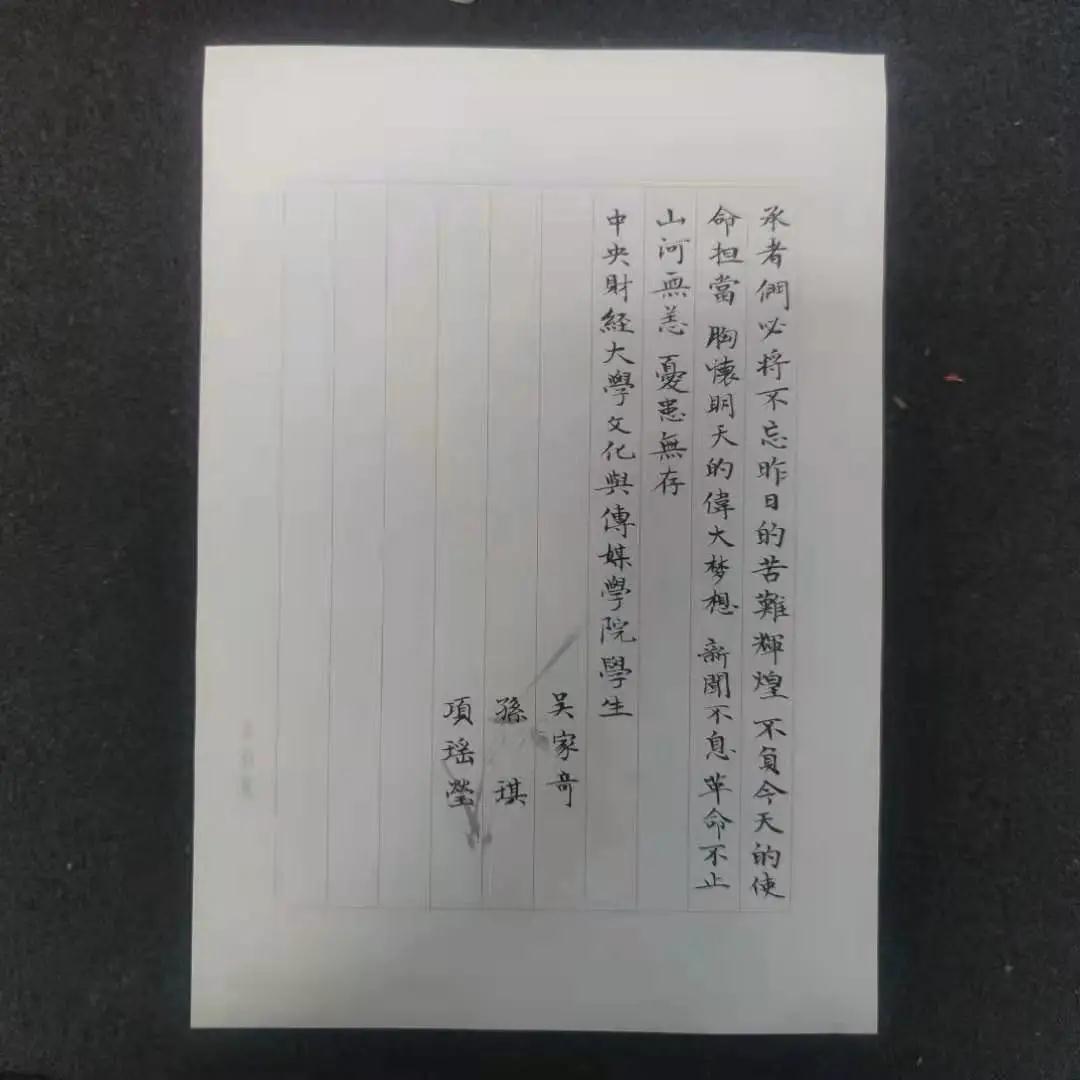 承者們必将不忘昨日的苦難輝煌 不負今天的使
命担當 胸懷明天的偉大梦想 新聞不息 革命不止
山河無恙 憂患無存
中央財経大學文化與傳媒學院學生
吴家奇
孫琪
項瑶瑩